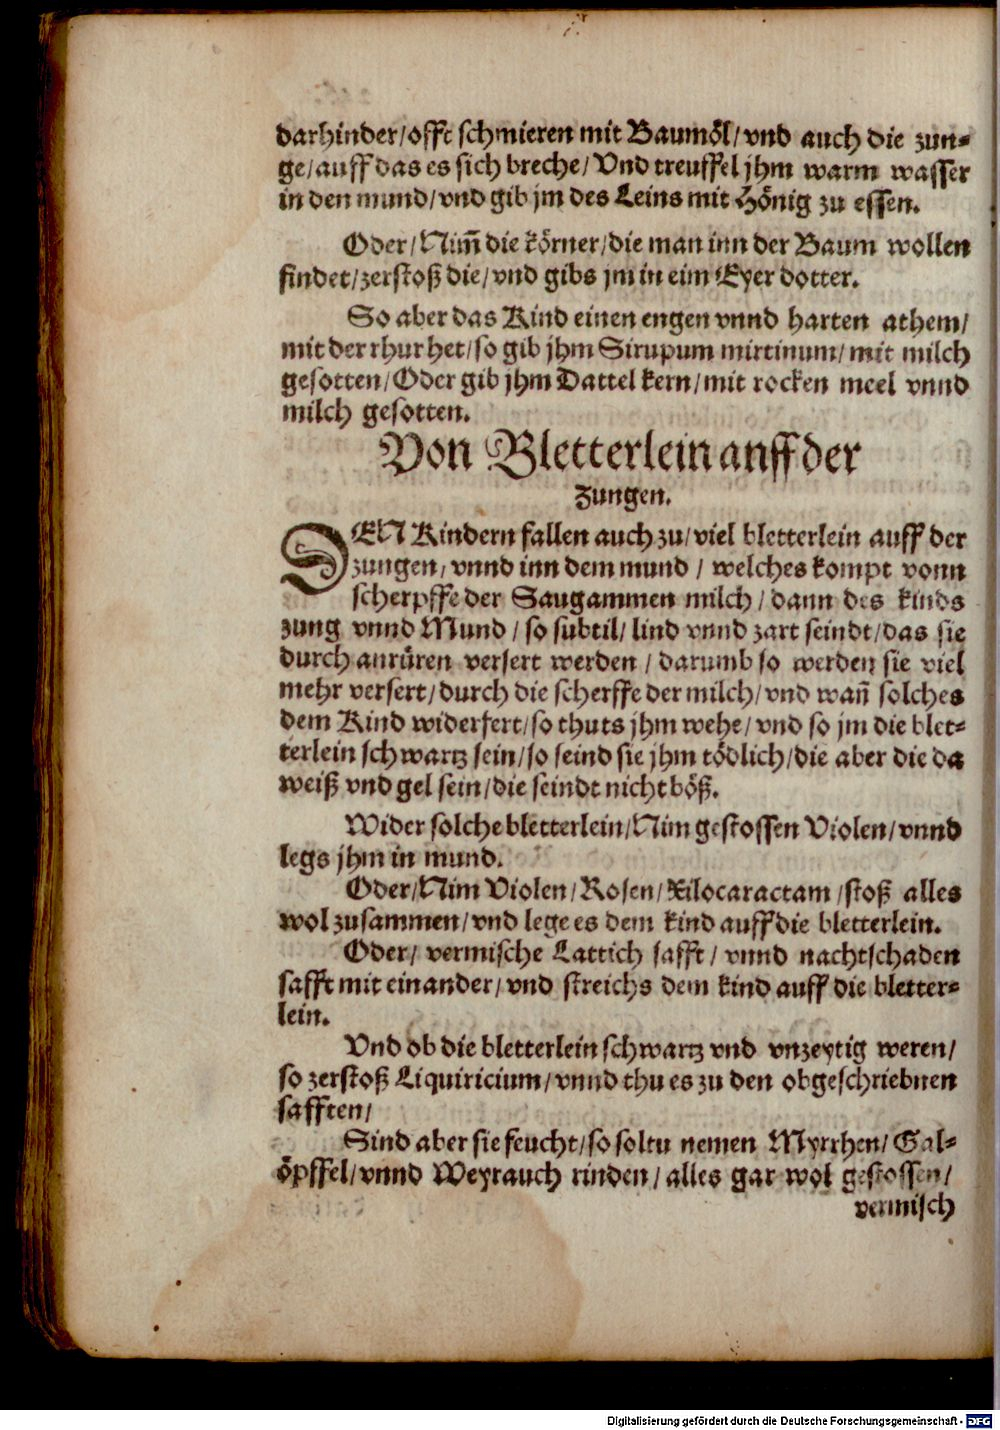 darhinder/offt schmieren mit Baumöl/vnd auch die zun-
ge/auff das es sich breche/Vnd treuffel jhm warm wasser
in den mund/vnd gib jm des Leins mit Hönig zu essen.
Oder/Nim̃ die körner/die man inn der Baum wollen
findet/zerstoß die/vnd gibs jm in eim Eyer dotter.
So aber das Kind einen engen vnnd harten athem/
mit der rhur het/so gib jhm Sirupum mirtinum/mit milch
gesotten/Oder gib jhm Dattel kern/mit rocken meel vnnd
milch gesotten.
Von Bletterlein anff der
Zungen.
DEN Kindern fallen auch zu/viel bletterlein auff der
zungen/vnnd inn dem mund/welches kompt vonn
scherpffe der Saugammen milch/dann des kinds
zung vnnd Mund/so subtil/lind vnnd zart seindt/das sie
durch anrüren versert werden/darumb so werden sie viel
mehr versert/durch die scherffe der milch/vnd wañ solches
dem Kind widerfert/so thuts jhm wehe/vnd so jm die blet-
terlein schwartz sein/so seind sie jhm tödlich/die aber die da
weiß vnd gel sein/die seindt nicht böß.
Wider solche bletterlein/Nim gestossen Violen/vnnd
legs jhm in mund.
Oder/Nim Violen/Rosen/Xilocaractam/stoß alles
wol zusammen/vnd lege es dem kind auff die bletterlein.
Oder/vermische Lattich safft/vnnd nachtschaden
safft mit einander/vnd streichs dem kind auff die bletter-
lein.
Vnd ob die bletterlein schwartz vnd vnzeytig weren/
so zerstoß Liquiricium/vnnd thu es zu den obgeschriebnen
safften/
Sind aber sie feucht/so soltu nemen Myrrhen/Gal-
öpffel/vnnd Weyrauch rinden/alles gar wol gestossen/
vermisch
Digitalisierung gefördert durch die Deutsche Forschungsgemeinschaft - DFG